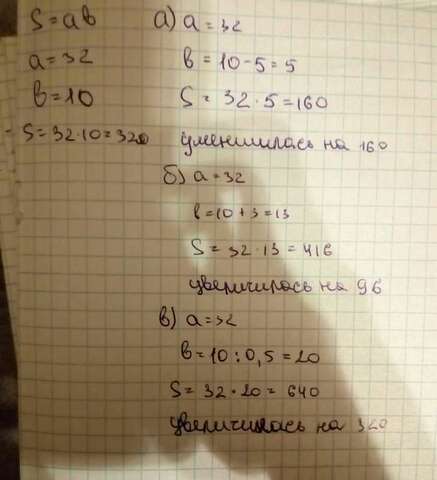 S = ab
a = 32
b = 10
S = 32·10 = 320
а) a = 32
b = 10 - 5 = 5
S = 32 · 5 = 160
уменшилась на 160
б) a = 32
b = 10 + 3 = 13
S = 32 · 13 = 416
увеличилась на 96
в) a = 32
b = 10 : 0,5 = 20
S = 32 · 20 = 640
увеличилась на 320